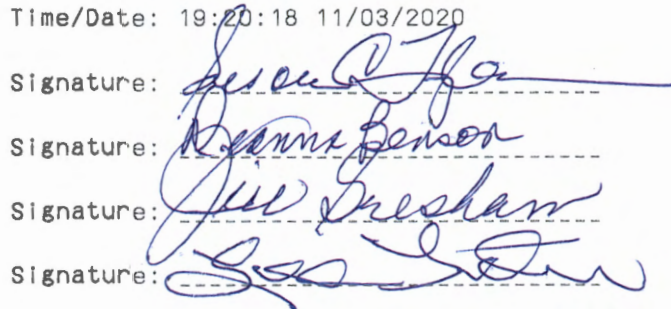 Time/Date: 19:20:18 11/03/2020
Signature: Susan
Signature: Deanna Benson
Signature: Jill Gresham
Signature: